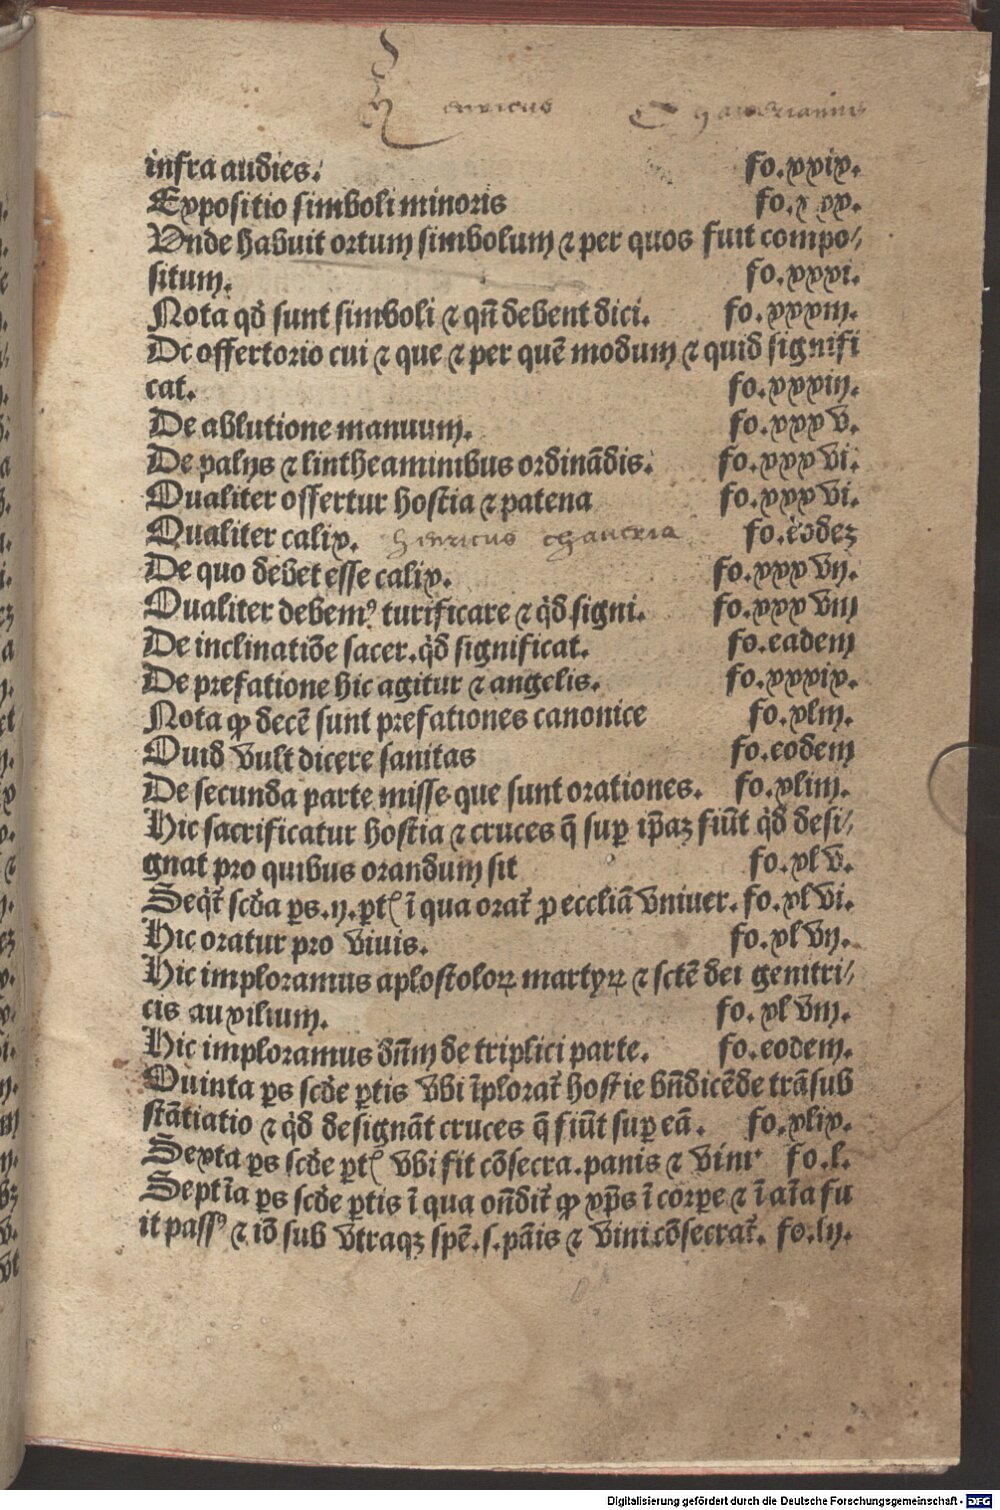 Henricus Chauerianus
infra audies. fo.xxix.
Expositio simboli minoris fo.xxx.
Unde habuit ortum simbolum ⁊ per quos fuit compo/
situm. fo.xxxi.
Nota qđ sunt simboli ⁊ qñ debent dici. fo.xxxiij.
De offertorio cui ⁊ que ⁊ per quē modum ⁊ quid signifi
cat. fo.xxxiiij.
De ablutione manuum. fo.xxxv.
De palijs ⁊ lintheaminibus ordinādis. fo.xxxvi.
Qualiter offertur hostia ⁊ patena fo.xxxvi.
Qualiter calix. henricus chaueria fo.eodeꝫ
De quo debet esse calix. fo.xxxvij.
Qualiter debemꝰ turificare ⁊ qđ signi. fo.xxxviij
De inclinatiōe sacer.qđ significat. fo.eadem
De prefatione hic agitur ⁊ angelis. fo.xxxix.
Nota ꝙ decē sunt prefationes canonice fo.xliij.
Quid vult dicere sanitas fo.eodem
De secunda parte misse que sunt orationes. fo.xliiij.
Hic sacrificatur hostia ⁊ cruces q̄ suꝑ ip̄aꝫ fiūt qđ desi/
gnat pro quibus orandum sit fo.xlv.
Seqt̄ scđa ꝑs.ij.ꝑtꝭ ī qua orat̄ ꝓ eccliā vniuer. fo.xlvi.
Hic oratur pro viuis. fo.xlvij.
Hic imploramus aplostoloꝝ martyꝝ ⁊ sctē dei genitri/
cis auxilium. fo.xlviij.
Hic imploramus dn̄m de triplici parte. fo.eodem.
Quinta ꝑs scđe ꝑtis vbi īplorat̄ hostie bn̄dicēde trāsub
stātiatio ⁊ qđ designāt cruces q̄ fiūt suꝑ eā. fo.xlix.
Sexta ꝑs scđe ꝑtꝭ vbi fit cōsecra.panis ⁊ vini fo.l.
Septīa ꝑs scđe ꝑtis ī qua on̄dit̄ ꝙ xp̄s ī corꝑe ⁊ ī aīa fu
it passꝰ ⁊ iō sub vtraqꝫ spē.s.pāis ⁊ vini cōsecrat̄. fo.lij.
Digitalisierung gefördert durch die Deutsche Forschungsgemeinschaft - DFG